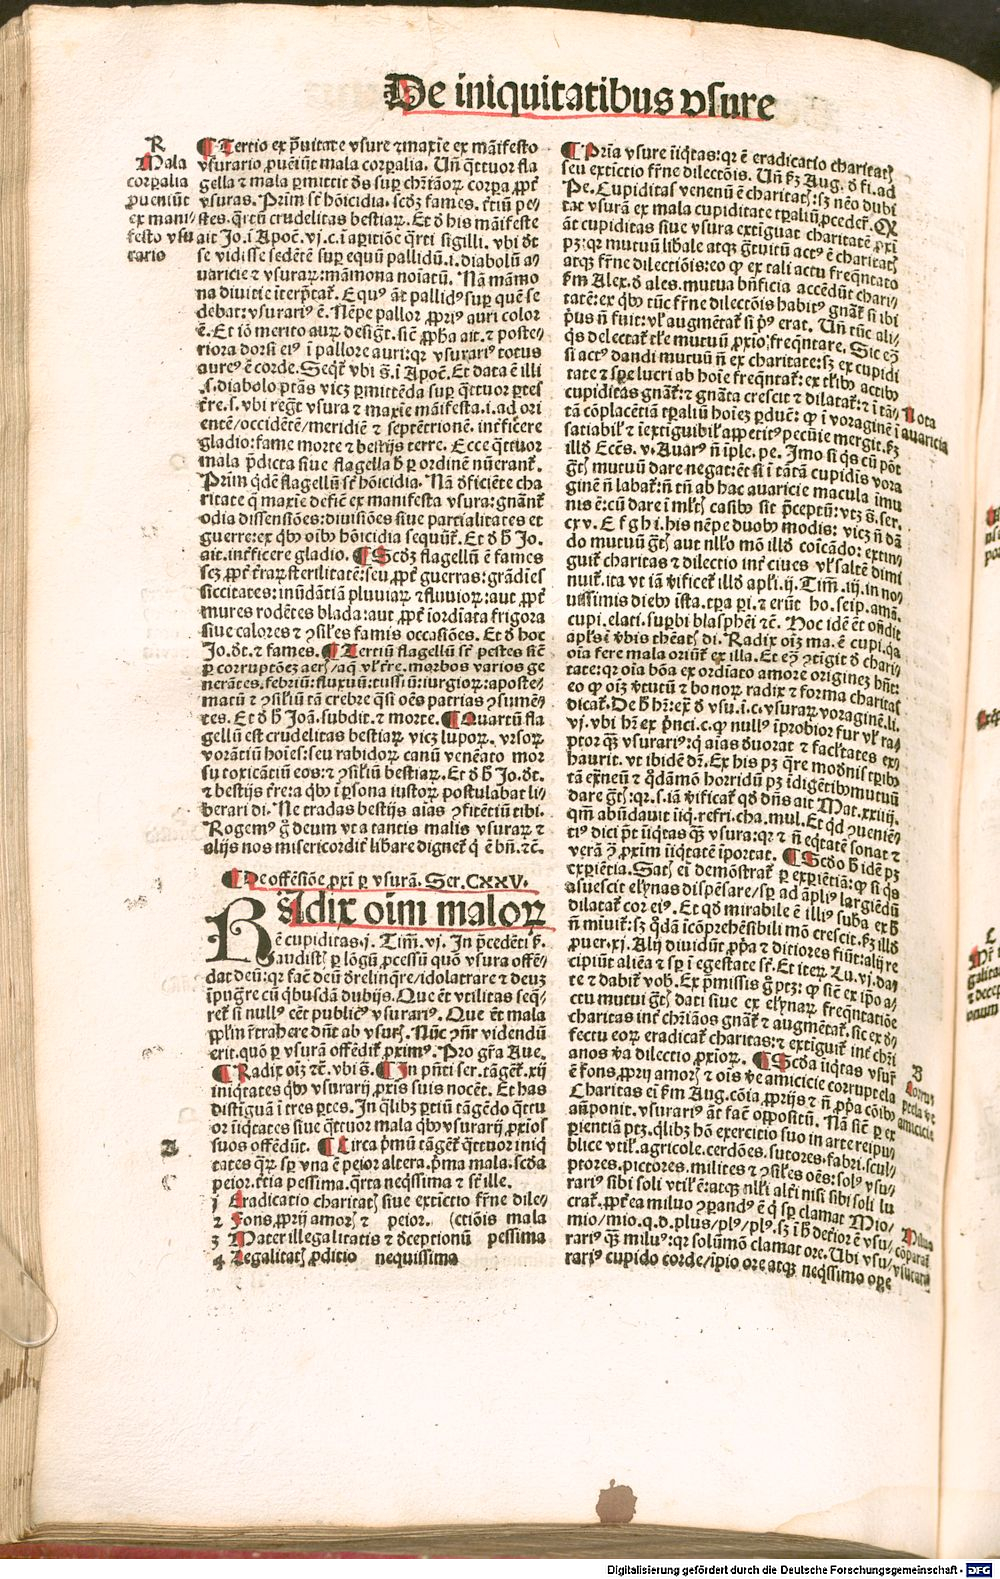 De iniquitatibus vsure
R
Mala
corpalia
ꝓueniūt
ex mani
festo vsu
rario
¶ Tertio ex p̄uitate vsure ⁊ maxīe ex māifesto
vsurario ꝓueniūt mala corꝑalia. Uñ q̄ttuor fla
gella ⁊ mala ꝑmittit ds̄ suꝑ chr̄iāoꝝ corꝑa ꝓpt̄
vsuras. Prim̄ st̄ hōicidia. scd̄ꝫ fames. t̄tiū pe⸗
stes. q̄rtū crudelitas bestiaꝝ. Et d̄ his māifeste
ait Jo. ī Apoc̄. vj. c. ī apitiōe q̄rti sigilli. vbi d̄t
se vidisse sedētē suꝑ equū pallidū .i. diabolū a⸗
uaricie ⁊ vsuraꝝ: māmona noīatū. Nā māmo
na diuitie īterp̄tat̄. Equꝰ āt pallidꝰ suꝑ quē se
debat: vsurariꝰ ē. Nēpe pallor ꝓpriꝰ auri color
ē. Et iō merito auꝝ desigt̄. sic̄ ꝓpha ait. ⁊ poste⸗
riora dorsi eiꝰ ī pallore auri: qꝛ vsurariꝰ totus
aureꝰ ē corde. Seqt̄ vbi s̄. ī Apoc̄. Et data ē illi
.s. diabolo ptās vicꝫ ꝑmittēda suꝑ q̄ttuor ꝑtes
t̄re. s. vbi regt̄ vsura ⁊ maxīe māifesta. i. ad ori
entē/occidētē/meridiē ⁊ septētrionē. int̄ficere
gladio: fame morte ⁊ bestijs terre. Ecce q̄ttuor
mala p̄dicta siue flagella h̄ ꝑ ordinē nūerant̄.
Prim̄ qdē flagellū st̄ hōicidia. Nā d̄ficiēte cha
ritate q̄ maxīe defic̄ ex manifesta vsura: gnānt̄
odia dissensiōes: diuisiōes siue partialitates et
guerre: ex qb̄ꝰ oib̄ꝰ hōicidia sequūt̄. Et d̄ h̄ Jo.
ait. int̄ficere gladio. ¶ Scd̄ꝫ flagellū ē fames
scꝫ ꝓpt̄ t̄raꝝ sterilitatē: seu ꝓpt̄ guerras: grādīes
siccitates: inūdatiā pluuiaꝝ ⁊ fluuioꝝ: aut ꝓpt̄
mures rodētes blada: aut ꝓpt̄ iordīata frigora
siue calores ⁊ ꝯsil̄es famis occasiōes. Et d̄ hoc
Jo. d̄t. ⁊ fames. ¶ Tertiū flagellū st̄ pestes sic̄
ꝑ corruptōeꝫ aer̄/aq̄ vl̄ t̄re. morbos varios ge
nerātes. febriū: fluxuū: tussiū: iurgioꝝ: aposte⸗
matū ⁊ ꝯsil̄iū tā crebre qsi oēs patrias ꝯsumē⸗
tes. Et d̄ h̄ Joā. subdit. ⁊ morte. ¶ Quartū fla
gellū est crudelitas bestiaꝝ vicꝫ lupoꝝ. vrsoꝝ
vorātiū hoīes: seu rabidoꝝ canū venēato mor
su toxicātiū eos: ⁊ ꝯsil̄iū bestiaꝝ. Et d̄ h̄ Jo. d̄t.
⁊ bestijs t̄re: a qb̄ꝰ ī ꝑsona iustoꝝ postulabat li⸗
berari di. Ne tradas bestijs aīas ꝯfitētiū tibi.
Rogemꝰ g̊ deum vt a tantis malis vsuraꝝ ⁊
alijs nos misericordit̄ lib̄are dignet̄ q̄ ē bn̄. ⁊c̄.
¶ De offēsiōe ꝓxi ꝑ vsurā. Ser. CXXV.
RAdix oīm maloꝝ
ē cupiditas. j. Tim̄. vj. In p̄cedēti ẜ.
audist̄ ꝑ lōgū ꝓcessū quō vsura offē⸗
dat deū: qꝛ fac̄ deū d̄relinq̄re/idolatrare ⁊ deuꝫ
īpugre cū qb̄usdā dubijs. Que ēt vtilitas seq̄⸗
ret̄ si nullꝰ cēt publicꝰ vsurariꝰ. Que ēt mala
ꝓl̄m īt̄rahere dn̄t ab vsur̄. Nūc ꝯn̄r videndū
erit. quō ꝑ vsurā offēdit̄ ꝓximꝰ. Pro gr̄a Aue.
¶ Radix oīꝫ ⁊c̄. vbi s̄. ¶ In p̄nti ser. tāget̄. xij
iniq̄tates qb̄ꝰ vsurarij ꝓxīs suis nocēt. Et has
distīguā ī tres ꝑtes. In q̄libꝫ ꝑtiū tāgēdo q̄ttu
or īiq̄tates siue q̄ttuor mala qb̄ꝰ vsurarij ꝓxīos
suos offēdūt. ¶ Circa p̄mū tāget̄ q̄ttuor iniq̄
tates q̄ꝝ sꝑ vna ē peior altera. p̄ma mala. scd̄a
peior. t̄tia pessima. q̄rta neq̄ssima ⁊ st̄ ille.
1 Eradicatio charitat̄ siue extīctio fr̄ne dile⸗
2 Fons ꝓprij amor̄ ⁊ peior. (ctiōis mala
3 Mater illegalitatis ⁊ d̄ceptionū pessima
4 Legalitat̄ ꝓditio nequissima
A
¶ Pria vsure īiq̄tas: qꝛ ē eradicatio charitat̄
seu extictio fr̄ne dilectōis. Uñ ẜꝫ Aug. d̄ fi. ad
Pe. Cupiditas venenū ē charitat̄: sꝫ nēo dubi
tat vsurā ex mala cupiditate tꝑaliū ꝓcedere. Qꝙ
āt cupiditas siue vsura extiguat charitatē ꝓxi
pꝫ: qꝛ mutuū lib̄ale atqꝫ g̊tuitū actꝰ ē charitat̄
atqꝫ fr̄ne dilectiōis: eo ꝙ ex tali actu freq̄ntato
ẜm Alex. d̄ ales. mutua bn̄ficia accēdūt chari⸗
tatē: ex qb̄ꝰ tūc fr̄ne dilectōis habitꝰ gnat̄ si ibi
p̄us n̄ fuit: vl̄ augmētat̄ si pꝰ erat. Uñ tūc ali⸗
qs delectat̄ tl̄e mutuū ꝓxīo freq̄ntare. Sic eꝫ
si actꝰ dandi mutuū n̄ ex charitate: sꝫ ex cupidi
tate ⁊ spe lucri ab hoīe freq̄ntat̄: ex tl̄ib̄ꝰ actib̄ꝰ
cupiditas gnat̄: ⁊ gnāta crescit ⁊ dilatat̄: ⁊ ī tā⸗
tā cōplacētiā tꝑaliū hoīeꝫ ꝑducit: ꝙ ī voraginē ī
satiabil̄ ⁊ īextīguibil̄ appetitꝰ pecuīe mergit. ẜꝫ
illd̄ Ecc̄s. v. Auarꝰ n̄ iple. pe. Imo si qs cū pōt
g̊t̄ mutuū dare negat: ēt si ī tātā cupidīs vora
ginē n̄ labat̄: n̄ tn̄ ab hac auaricie macula imu
nis ē: cū dare ī mlt̄ casib̄ꝰ sit p̄ceptū: vtꝫ s̄. ser.
cxv. E f g h i. his nēpe duob̄ꝰ modis: vicꝫ n̄ dā
do mutuū g̊t̄ aut nll̄o mō illd̄ coīcādo: extin⸗
guit̄ charitas ⁊ dilectio int̄ ciues vl̄ saltē dimi
nuit̄. ita vt iā v̄ificet̄ illd̄ apl̄i. ij. Tim̄. iij. in no⸗
uissimis dieb̄ꝰ īsta. tꝑa ꝑi. ⁊ erūt ho. seip. amā.
cupi. elati. suꝑbi blasphei ⁊c̄. Hoc idē ēt oñdit
apl̄s ī v̄bis theat̄ di. Radix oīꝫ ma. ē cupi. qꝛ
oīa fere mala oriūt̄ ex illa. Et eꝫ ꝯtigit d̄ chari⸗
tate: qꝛ oīa bōa ex ordīato amore originē hn̄t:
eo ꝙ oīꝫ v̄tutū ⁊ bonoꝝ radix ⁊ forma charitas
dicat̄. De h̄ hr̄ ex̄ d̄ vsu. ī. c. vsuraꝝ voraginē. li.
vj. vbi hr̄ ex p̄nci. c. ꝙ nullꝰ īprobior fur vl̄ ra⸗
ptor q̄ꝫ vsurariꝰ: q aīas d̄uorat ⁊ facl̄tates ex⸗
haurit. vt ibidē dr̄. Ex his pꝫ q̄re mod̄nis tꝑib̄ꝰ
tā exneū ⁊ qdāmō horridū pꝫ īdigētib̄ꝰ mutuū
dare g̊t̄: qꝛ. s. iā v̄ificat̄ qd̄ dn̄s ait Mat. xxiiij.
qm̄ abūdauit īiq̄. refri. cha. mul. Et qd̄ ꝯueniē⸗
tiꝰ dici pōt īiq̄tas q̄ꝫ vsura: qꝛ ⁊ n̄ eq̄tatē sonat ⁊
verā ꝯ ꝓxim̄ īiq̄tatē īportat. ¶ Scd̄o h̄ idē pꝫ
exꝑīetia. Sat̄ ei demōstrat̄ ꝑ exꝑiētiā: ꝙ si qs
asuescit el̄ynas dispēsare/sꝑ ad āpliꝰ largiēdū
dilatat̄ cor eiꝰ. Et qd̄ mirabile ē illiꝰ suba ex h̄
n̄ miuit̄: sꝫ qdā icōprehēsibili mō crescit. ẜꝫ illd̄
prouer. xj. Alij diuidūt ꝓpa ⁊ ditiores fiūt: alij re
cipiūt aliēa ⁊ sꝑ ī egestate st̄. Et iteꝝ Lu. vj. da⸗
te ⁊ dabit̄ vob̄. Ex p̄missis g̊ ptꝫ: ꝙ sic̄ ex ipo a⸗
ctu mutui g̊t̄ dati siue ex el̄ynaꝝ freq̄ntatiōe
charitas int̄ chriāos gnat̄ ⁊ augmētat̄. sic ex d̄⸗
fectu eoꝝ eradicat̄ charitas: ⁊ extiguit̄ int̄ chr̄i
anos v̄a dilectio ꝓxioꝝ. ¶ Scd̄a īiq̄tas vsur̄
ē fons ꝓprij amor̄ ⁊ oīs ve amicicie corruptela
Charitas ei ẜm Aug. cōia ꝓprijs ⁊ n̄ ꝓpa cōib̄ꝰ
añponit. vsurariꝰ āt fac̄ oppositū. Nā sic̄ ꝑ ex
ꝑientiā ptꝫ. qlibꝫ hō exercitio suo in arte reipu⸗
blice vtil̄. agricole. cerdōes. sutores. fabri. scul⸗
ptores. pictores. milites ⁊ ꝯsil̄es oēs: solꝰ vsu⸗
rariꝰ sibi soli vtil̄ ē: atqꝫ nll̄i alt̄i nisi sibi soli lu
crat̄. ꝓpt̄ea miluo ꝯꝑandꝰ ē q̄ sꝑ clamat Mio/
mio/mio. q. d. plus/plꝰ/plꝰ. sꝫ ī h̄ deterior ē vsu⸗
rariꝰ q̄ꝫ miluꝰ: qꝛ solūmō clamat ore. Ubi vsu⸗
rariꝰ cupido corde/ipio ore atqꝫ neq̄ssimo oꝑe
Nota
auaricia
B
Corrup
ptela ve
amicicie
Miluo
cōparat̄
vsurariꝰ
Digitalisierung gefördert durch die Deutsche Forschungsgemeinschaft - DFG